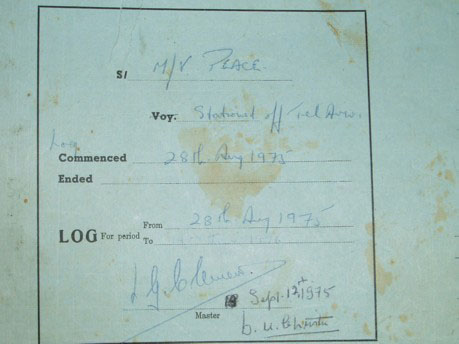 S/ M/V PEACE.
Voy. Stationed off Tel Aviv.
Log
Commenced 28th Aug 1975
Ended
LOG For period From 28th Aug 1975
To
Sept. 12th 1975
Master